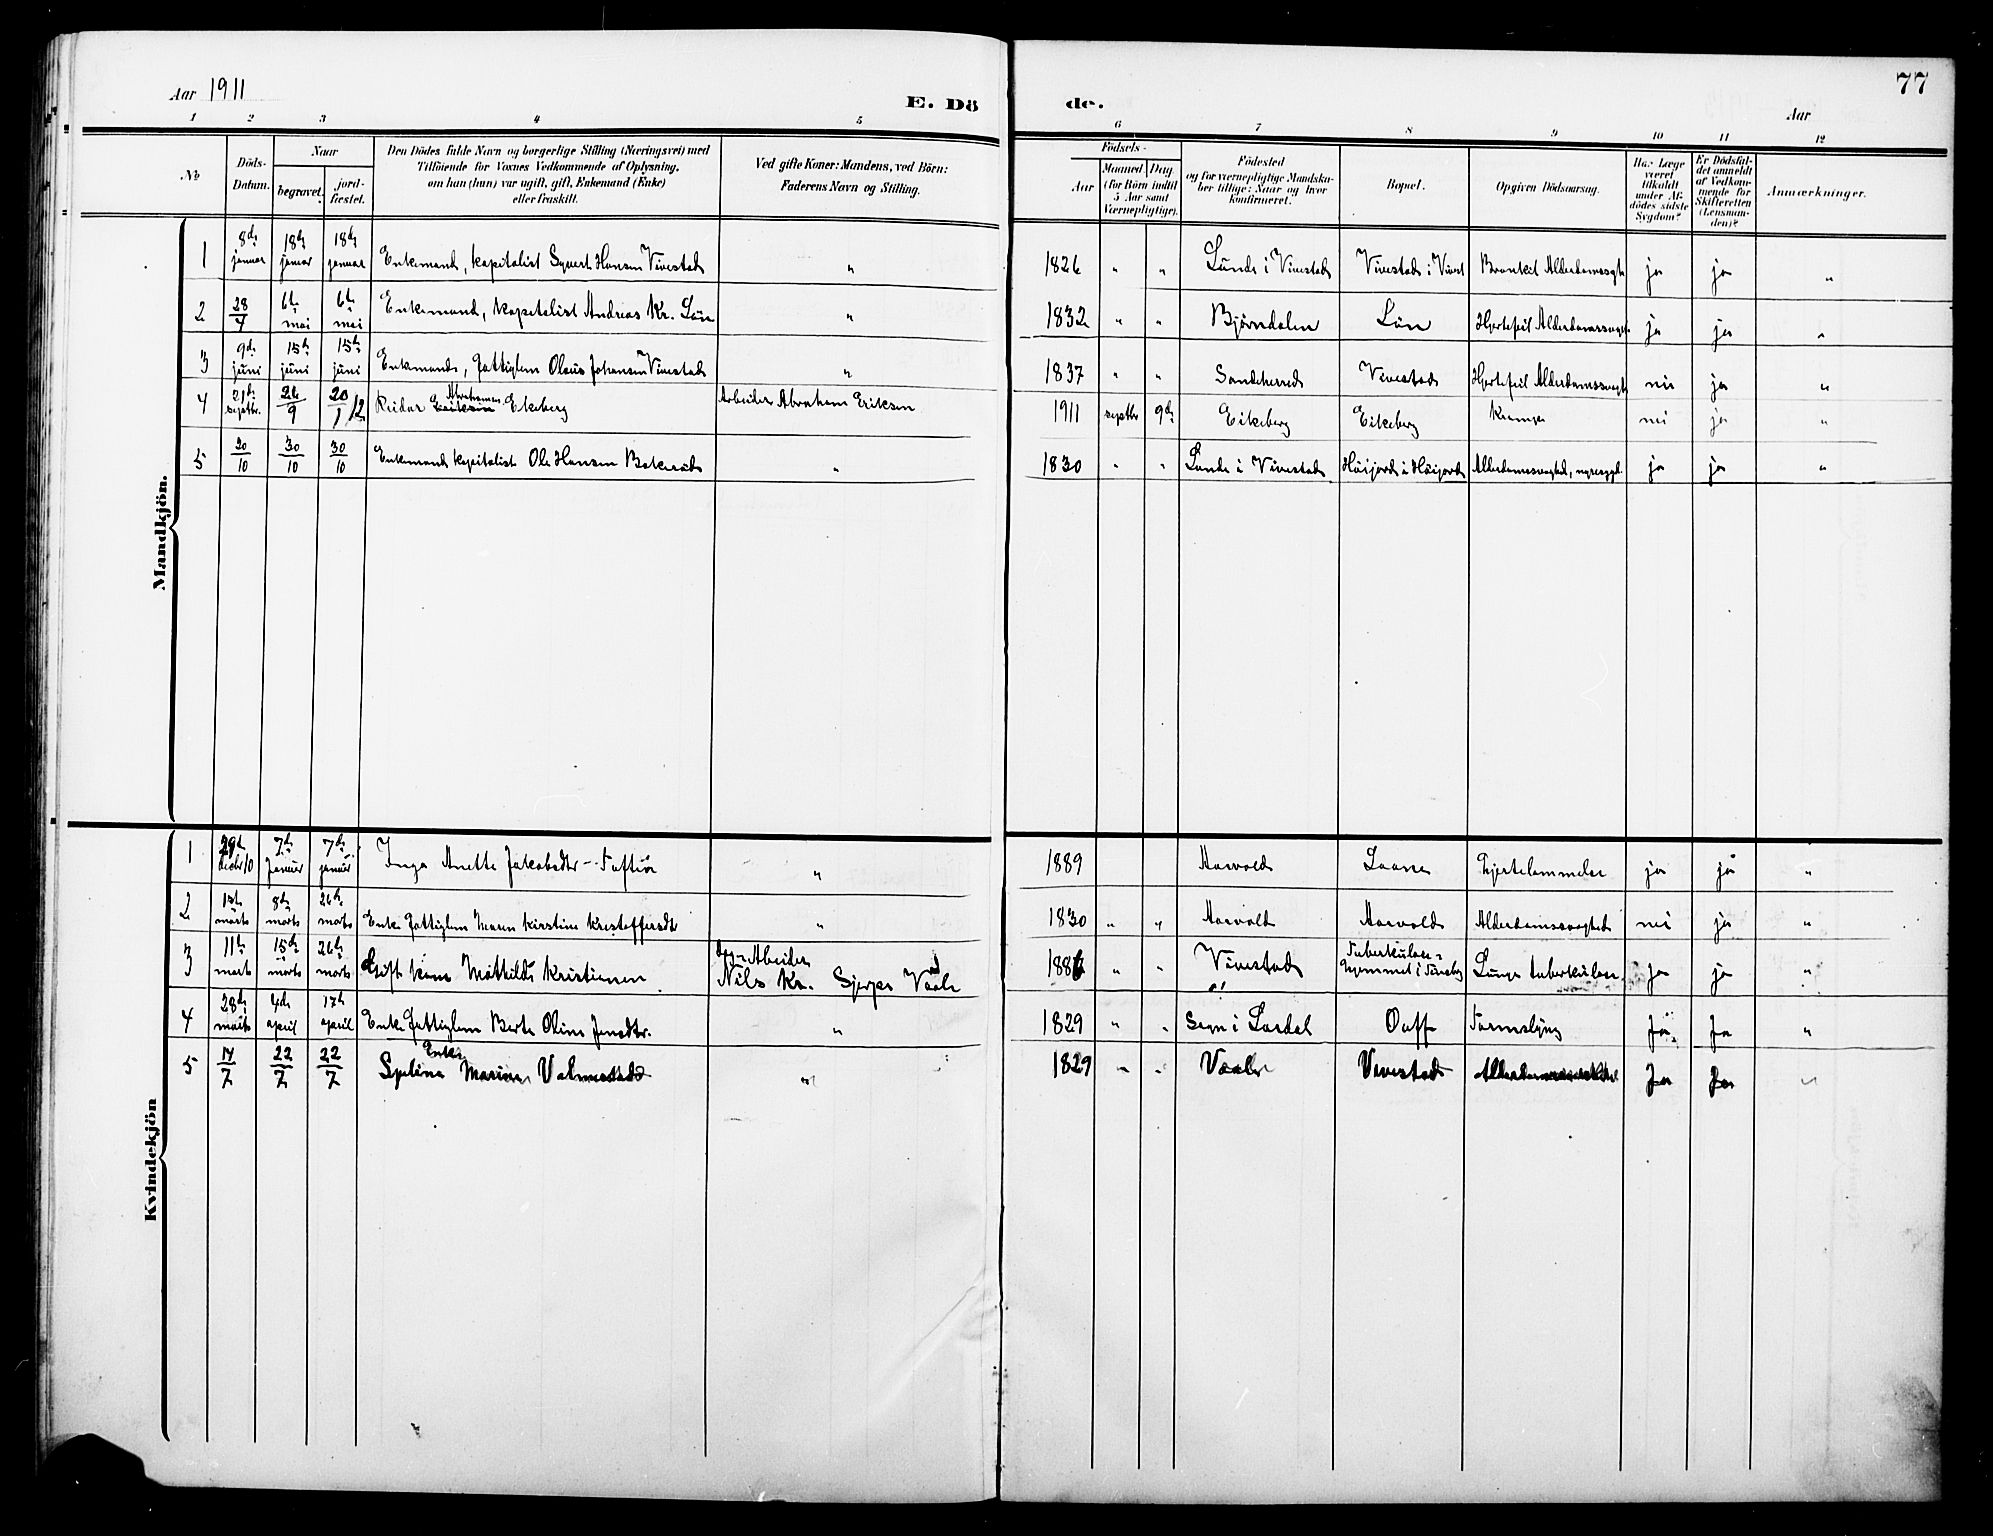 Aar 1911
E. Dö
de.
Aar
77
1 2 3 4 5 6 7 8 9 10 11 12
№
Döds-Datum.
Naar
begravet.
jord-fæstet.
Den Dödes fulde Navn og borgerlige Stilling (Næringsvei) med
Tilföiende for Voxnes Vedkommende af Oplysning,
om han (hun) var ugift, gift, Enkemand (Enke)
eller fraskilt.
Ved gifte Koner: Mandens, ved Börn:
Faderens Navn og Stilling.
Födsels-
Aar
Maaned Dag
(for Börn indtil
5 Aar samt
Værnepligtige).
Födested
og for værnepligtige Mandska-
ber tillige: Naar og hvor
konfirmeret.
Bopæl.
Opgiven Dödsaarsag.
Har Læge
været
tilkaldt
under Af-
dödes sidste
Sygdom?
Er Dödsfal-
det anmeldt
af Vedkom-
mende for
Skifteretten
(Lensman-
den)?
Anmærkninger.
Mandkjön.
1 8de januar 18de januar 18de januar Enkemand, kapitalist Syvert Hansen Vivestad " 1826 " " Lunde i Vivestad Vivestad i Vivest Bronkit Alderdomssvagh ja ja "
2 28/4 6te mai 6te mai Enkemand, kapitalist Andreas Kr. Lön " 1832 " " Bjørndalen Lön Hjertefeil Alderdomssvagh ja ja "
3 9de juni 15de juni 15de juni Enkemand, Fattiglem Olaus Johansen Vivestad " 1837 " " Sandeherred Vivestad Hjertefeil Alderdomssvagh nei ja "
4 21de septbr. 26/9 20/12 Reidar Eriksen Abrahamsen Ekeberg Arbeider Abraham Eriksen 1911 septbr 9de Eikeberg Eikeberg Krampe nei ja "
5 20/10 30/10 30/10 Enkemand kapitalist Ole Hansen Bakerud " 1830 " " Lunde i Vivestad Höijord i Höijord Alderdomssvaghed, nyresygd. ja ja "
Kvindekjön
1 29de decbr/10 7de Januar 7de januar Inga Anette Jakobsdtr - " 1889 Aarvold Hjertelammelse ja ja "
2 1ste marts 8de marts 26de marts Enke Fattiglem Maren Kirstine Kristoffersdtr " 1830 " " Aarvold Aarvold Alderdomssvaghed nei ja "
3 11te marts 15de marts 26de marts Gift Kone Mathilde Kristiansen Nils Kr. Vaale 1886 " " Vivestad Tuberkulose-hjemmet i Tönsberg Lunge tuberkulose ja ja "
4 28de marts 4de april 17de april Enke Fattiglem Berte Oline Jensdtr. " 1829 " " i Lardal Tarmslyng Ja Ja "
5 17/7 22/7 22/7 Enke Marine " 1829 " " Vaale Vivestad Ja Ja "